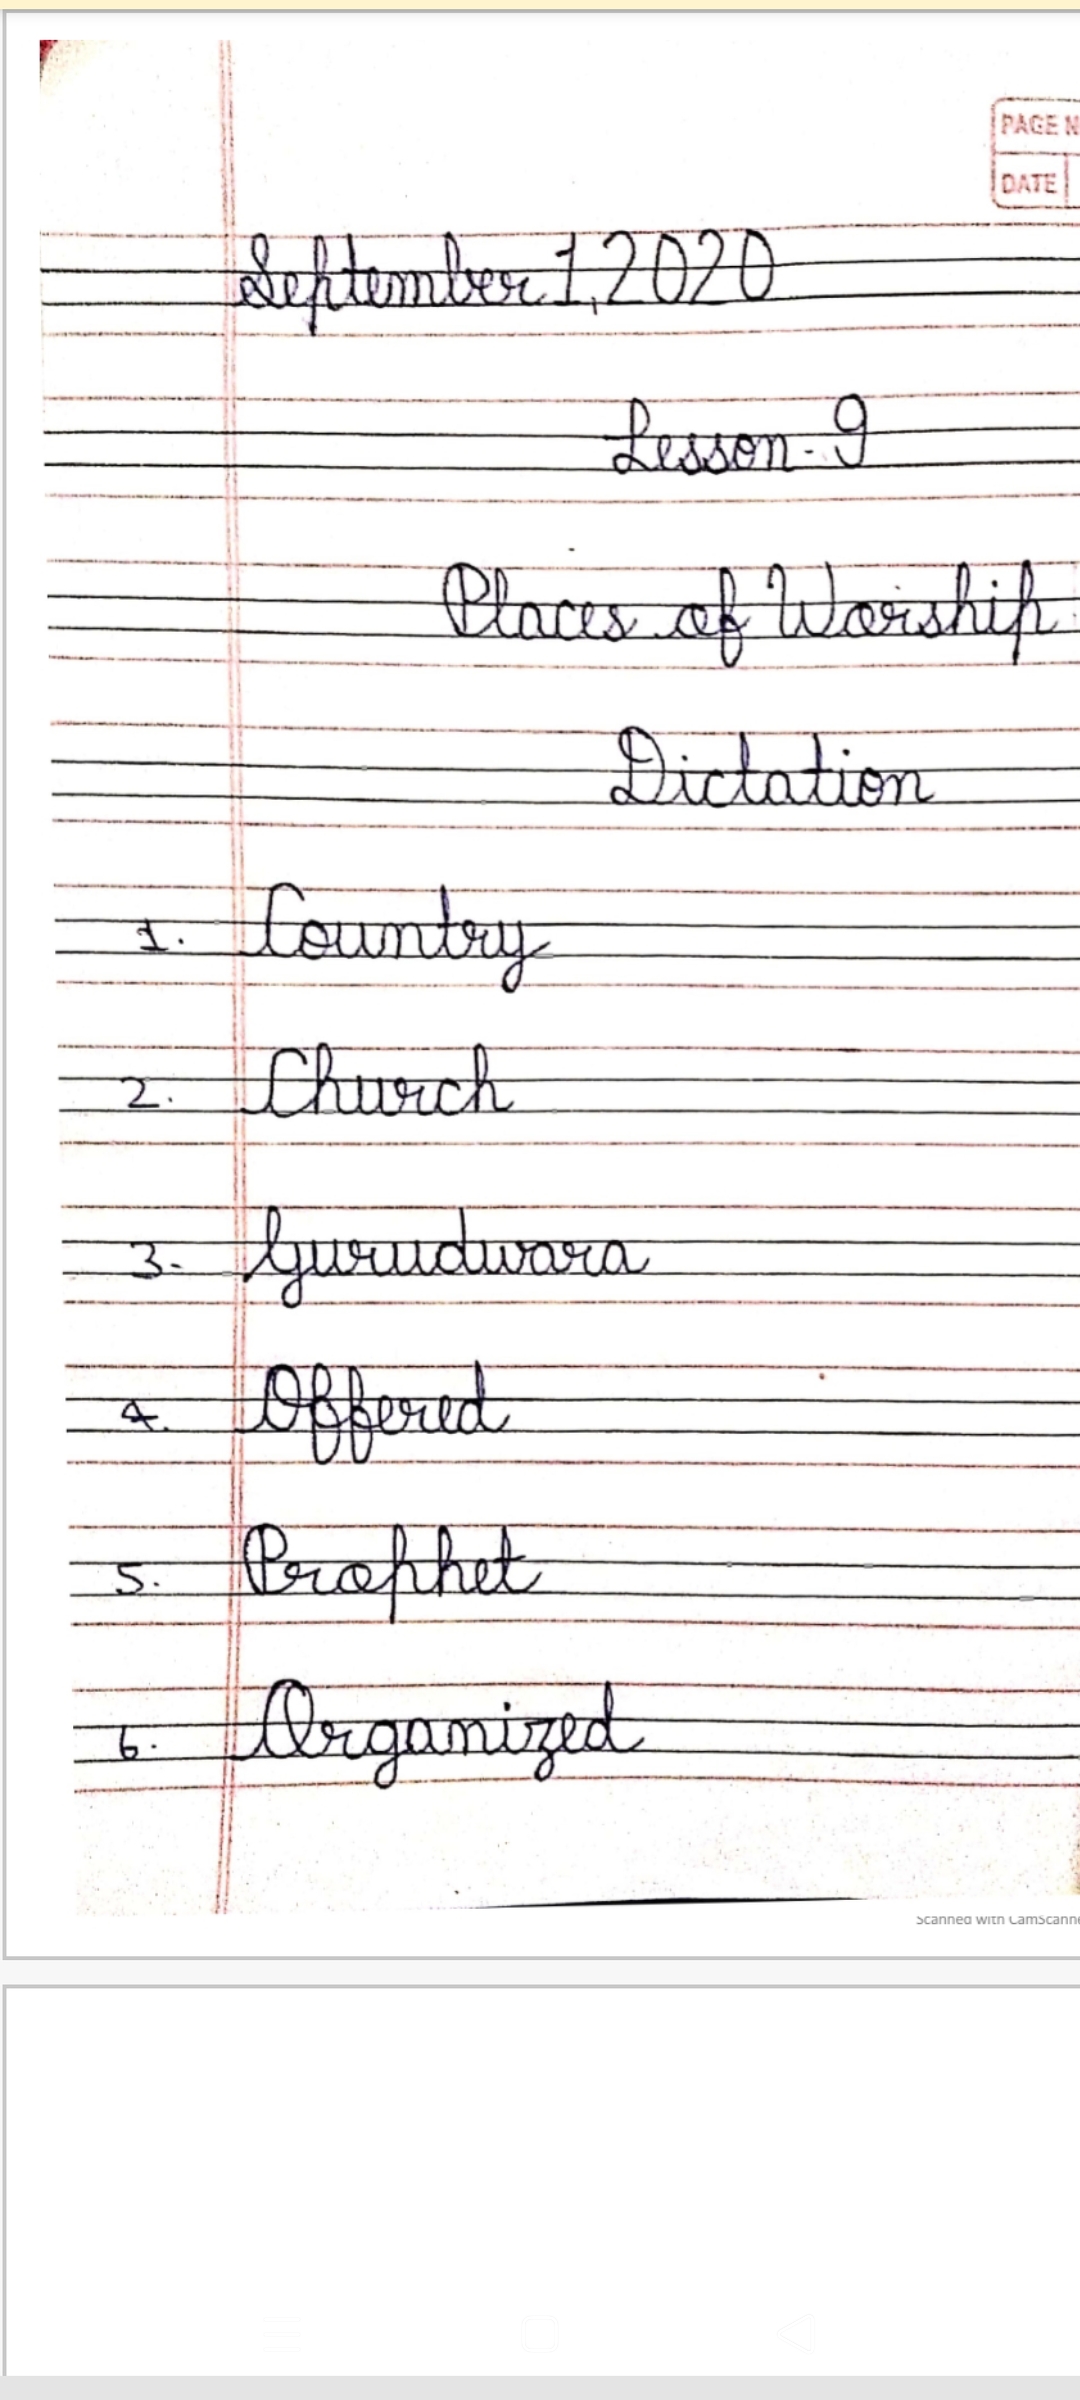 PAGE N
DATE
September 1, 2020
Lesson-9
Places of Worship
Dictation
1. Country
2. Church
3. Gurudwara
4. Offered
5. Prophet
6. Organized
Scanned with CamScanne